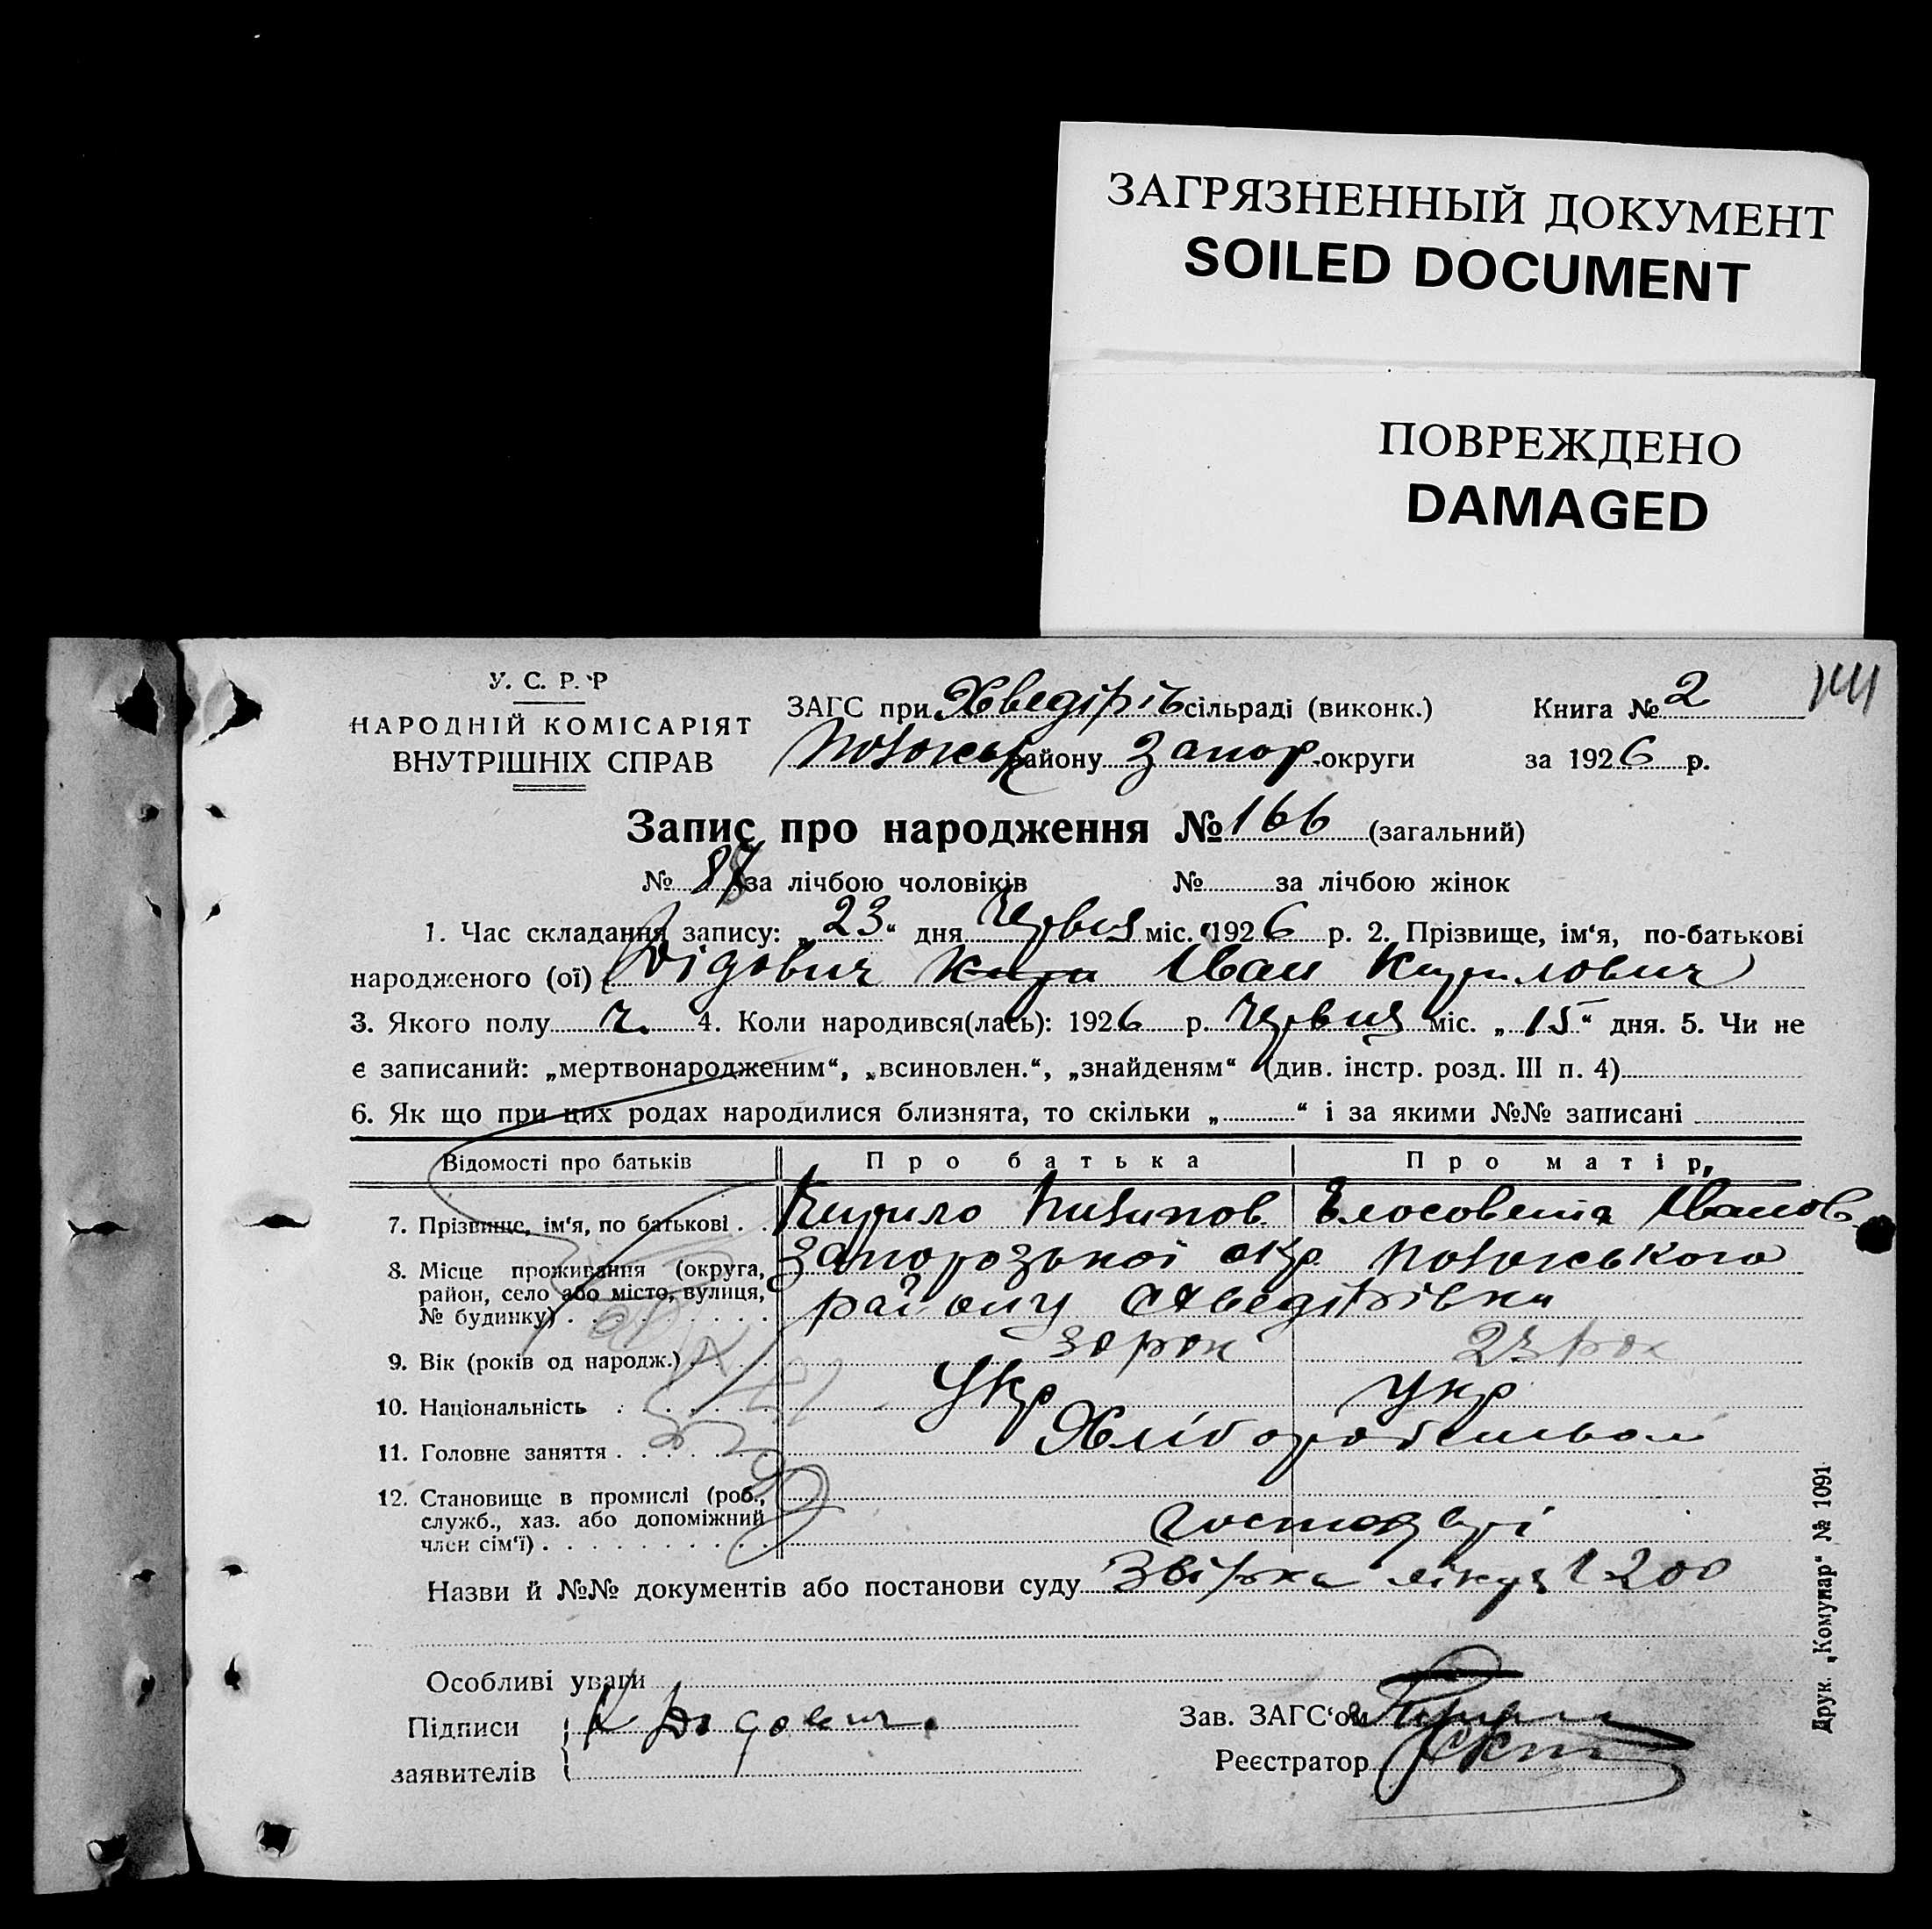 ЗАГРЯЗНЕННЫЙ ДОКУМЕНТ
SOILED DOCUMENT
ПОВРЕЖДЕНО
DAMAGED
У. С. Р. Р
НАРОДНІЙ КОМІСАРІЯТ
ВНУТРІШНІХ СПРАВ
ЗАГС при Хведірів сільраді (виконк.)
району Запор. округи
Книга № 2
за 1926 р.
141
Запис про народження № 166 (загальний)
№ 87 за лічбою чоловіків № за лічбою жінок
1. Час складання запису: „23“ дня Червня міс. 1926 р. 2. Прізвище, ім'я, по-батькові
народженого (ої) Дідович Іван Кирилович
3. Якого полу ч. 4. Коли народився(лась): 1926 р. Червня міс. „15“ дня. 5. Чи не
є записаний: „мертвонародженим“, „всиновлен.“, „знайденям“ (див. інстр. розд. III п. 4)
6. Як що при цих родах народилися близнята, то скільки „ “ і за якими №№ записані
Відомості про батьків Про батька Про матір,
7. Прізвище, ім'я, по батькові . . Кирило Елосовета Іванов
8. Місце проживання (округа,
район, село або місто, вулиця,
№ будинку)
Запорозької окр.
району Хведірівки
9. Вік (років од народж.) . . . 30 рок 23 рок
10. Національність . . . . . Укр Укр
11. Головне заняття . . . . . . Хліборобством
12. Становище в промислі (роб.,
служб., хаз. або допоміжний
член сім'ї) . . . . . . . . . .
господарі
Назви й №№ документів або постанови суду Звірка 200
Особливі уваги
Підписи К Дідович.
заявителів
Зав. ЗАГС'ом
Реєстратор
Друк. „Комунар“ № 1091